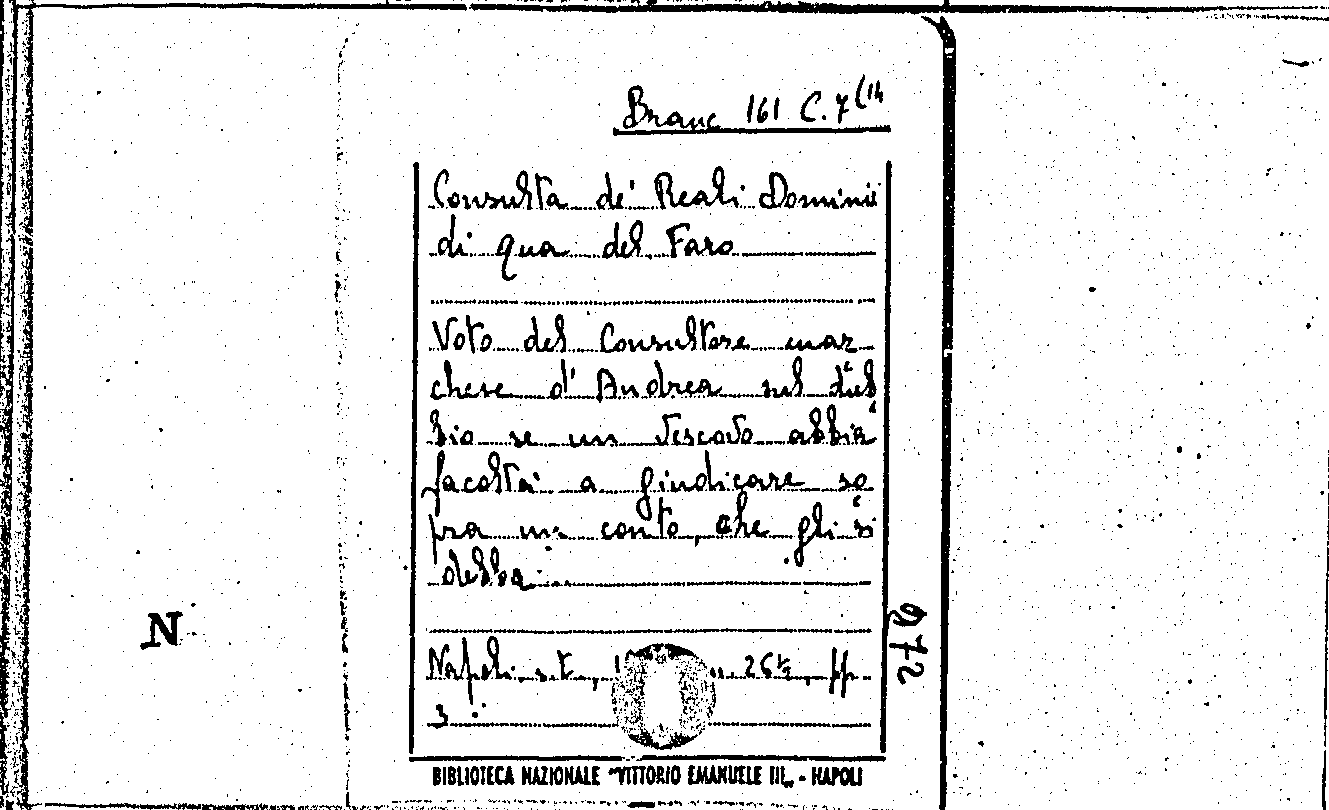 Branc 161 C. 7 (14
Consulta de' Reali Dominii
di qua del Faro
Voto del Consultore mar
chese d'Andrea sul dub
bio se un Vescovo abbia
facoltà a giudicare so
pra un conto, che gli si
debba.
Napoli, s.t., 26½, pp.
3.
N
972
BIBLIOTECA NAZIONALE "VITTORIO EMANUELE III„ - NAPOLI